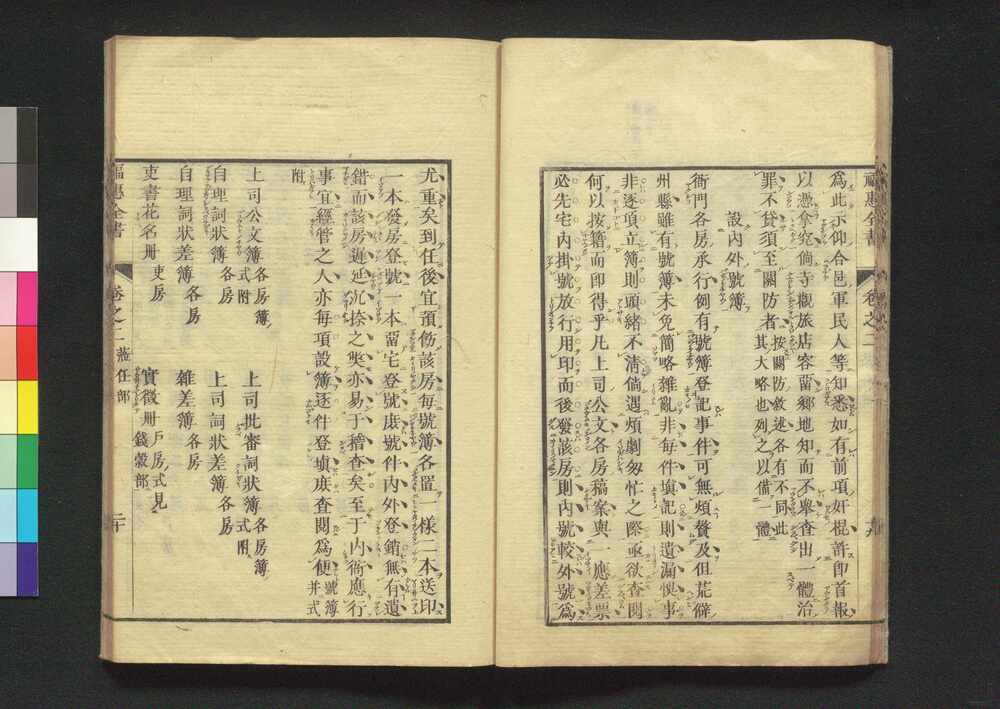 福惠全書
卷之二
十九
爲此示仰合邑軍民人等知悉如有前項奸棍許卽首報
以憑拿究倘寺觀旅店容畱鄉地知而不舉查出一體治
罪不貸須至關防者按關防敘述各有不同此其大略也列之以備一體
設內外號簿
衙門各房承行例有號簿登記事件可無煩贅及但荒僻
州縣雖有號簿未免簡略雜亂非每件塡記則遺漏悞事
非逐項立簿則頭緒不淸倘遇煩劇匆忙之際亟欲查閱
何以按籍而卽得乎凡上司公文各房稿案與一應差票
必先宅內掛號放行用印而後發該房則內號較外號爲
尤重矣到任後宜預飭該房每號簿各置一樣二本送印
一本發房登號一本畱宅登號庶號件內外登銷無有遺
錯而該房遲延沉捺之獘亦易于稽查矣至于內衙應行
事宜經管之人亦每項設簿逐件登塡庶查閱爲便號簿并式
附
上司公文簿各房簿式附
上司批審詞狀簿各房簿式附
自理詞狀簿各房
上司詞狀差簿各房
自理詞狀差簿各房
雜差簿各房
吏書花名册吏房
實徵册戶房式見錢穀部
福惠全書
卷之二
蒞任部
二十